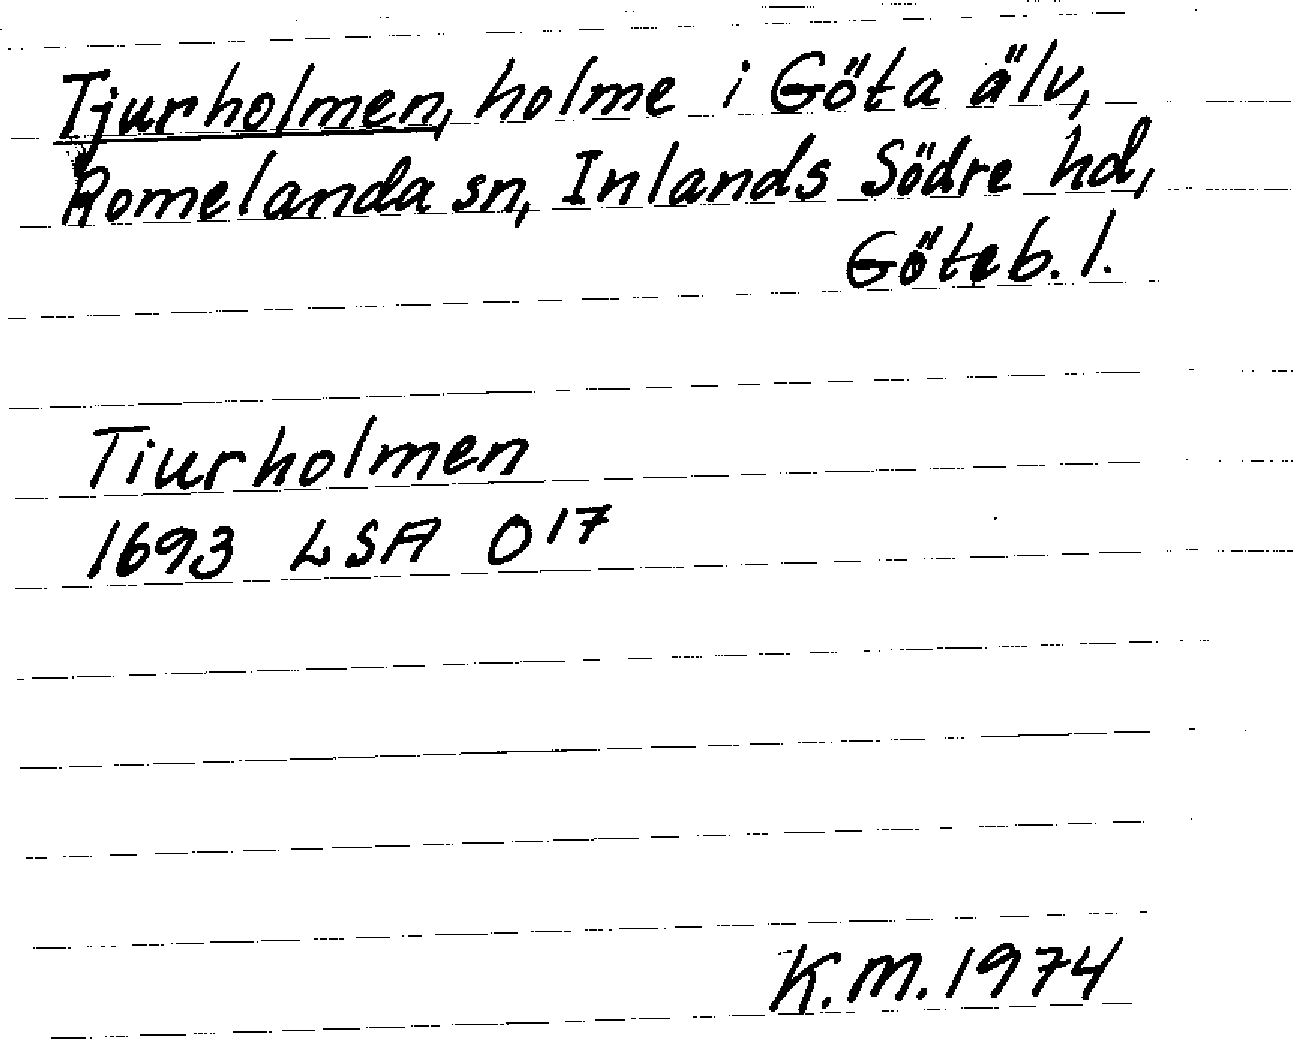 Tjurholmen, holme i Göta älv,
Romelanda sn, Inlands Södre hd,
Göteb. l.
Tiurholmen
1693 LSA O17
K.M. 1974